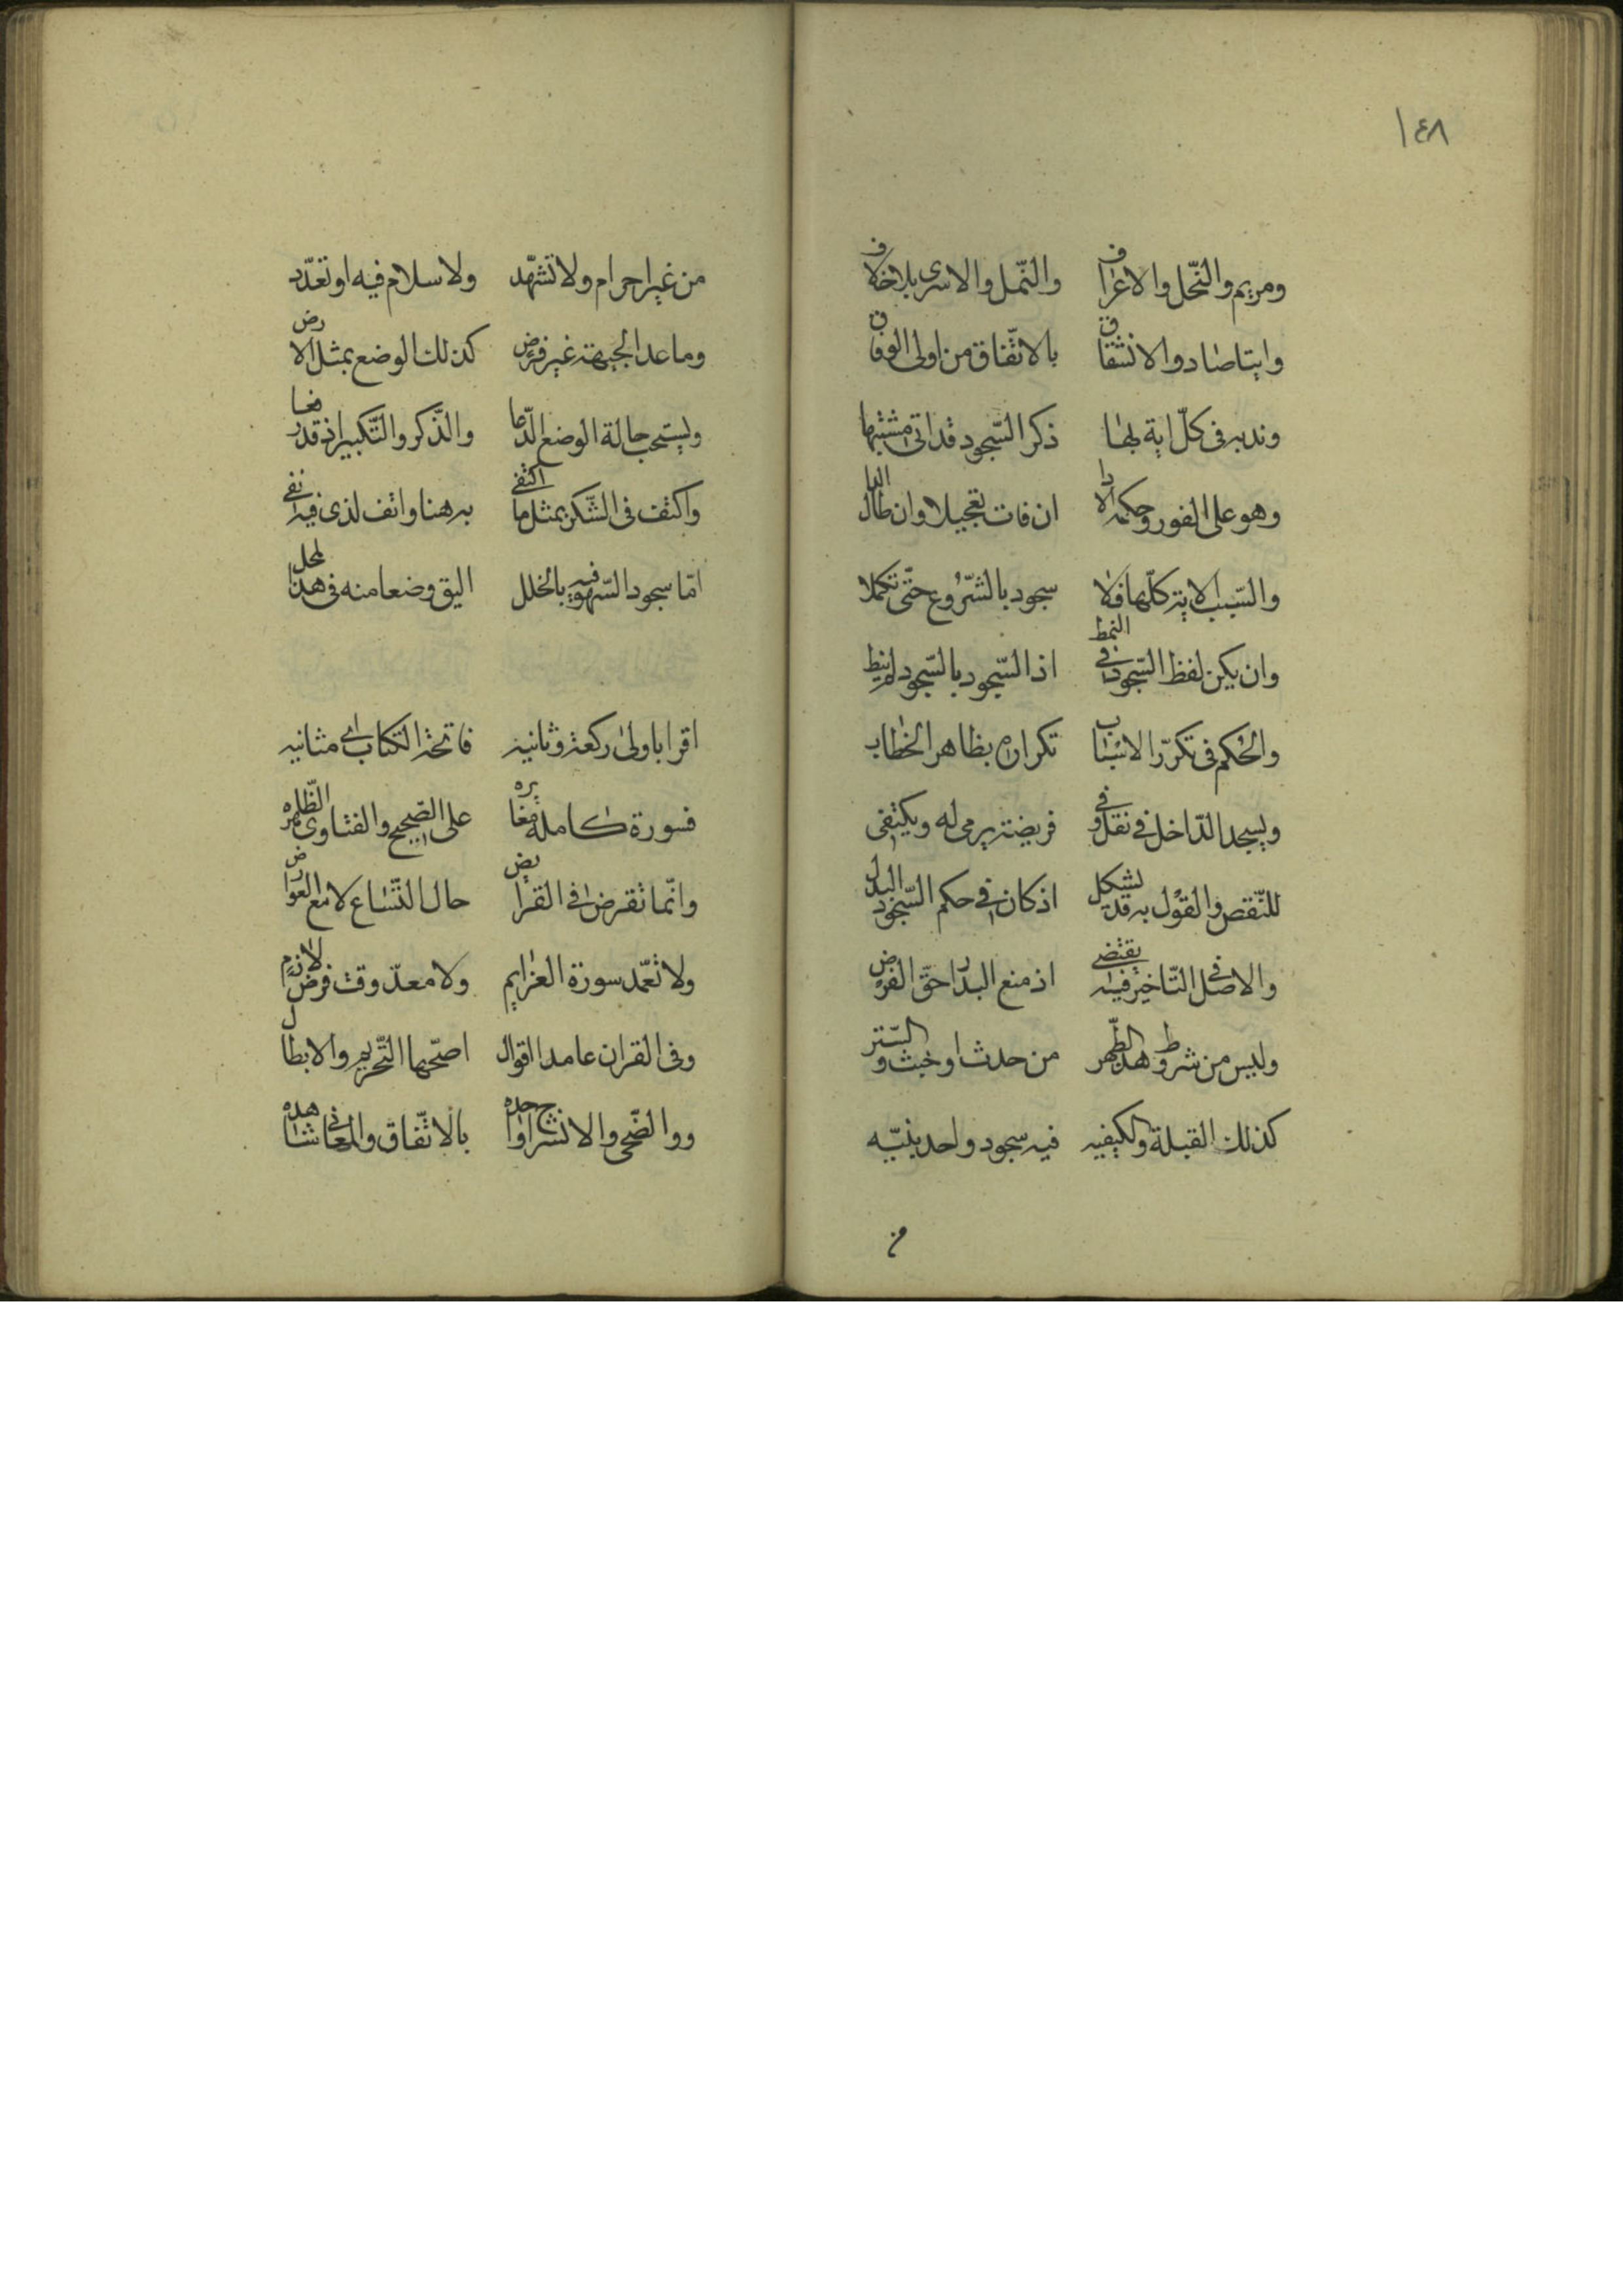 ١٤٨
ومريم والنحل والاعراف والنمل والاسرى بلا خلاف
وايتا صاد والانشقاق بالاتفاق من اولى الوفاق
وندبه فى كل اية بها ذكر السجود قد اتى مشتبها
وهو على الفور وحكمه الادا ان فات تعجيلا وان طال
والسبب الاية كلها فلا سجود بالشروع حتى تكملا
وان يكن لفظ السجود فى النمط اذ السجود بالسجود لم ينط
والحكم فى تكرر الاسباب تكراره بظاهر الخطاب
ويسجد الداخل فى نفل وفى فريضة يرمى له ويكتفى
للنقص والقول به قد يشكل اذ كان فى حكم السجود البدل
والاصل فى التاخير فيه يقتضى اذ منع البدار حق الفرض
وليس من شروط هذا الطهر من حدث او خبث والستر
كذلك القبلة والكيفيه فيه سجود واحد بنيه
من
من غير احرام ولا تشهد ولا سلام فيه او تعدد
وما عدا الجبهة غير فرض كذلك الوضع بمثل الارض
ويستحب حالة الوضع الدعا والذكر والتكبير اذ قد رفعا
واكتف فى الشكر بمثل ما اكتفى به هنا وانف لذى فيه انفى
اما سجود السهو فهو بالخلل اليق وضعا منه فى هذا المحل
اقرا باولى ركعة وثانيه فاتحة الكتاب اى مثانيه
فسورة كاملة مغايره على الصحيح والفتاوى الظاهره
وانما تفرض فى القرايض حال اتساع لا مع العوارض
ولا تعمد سورة العزايم ولا معد وقت فرض لازم
وفى القران عامدا اقوال اصحها التحريم والابطال
ووالضحى والانشراح واحده بالاتفاق والمعانى شاهده